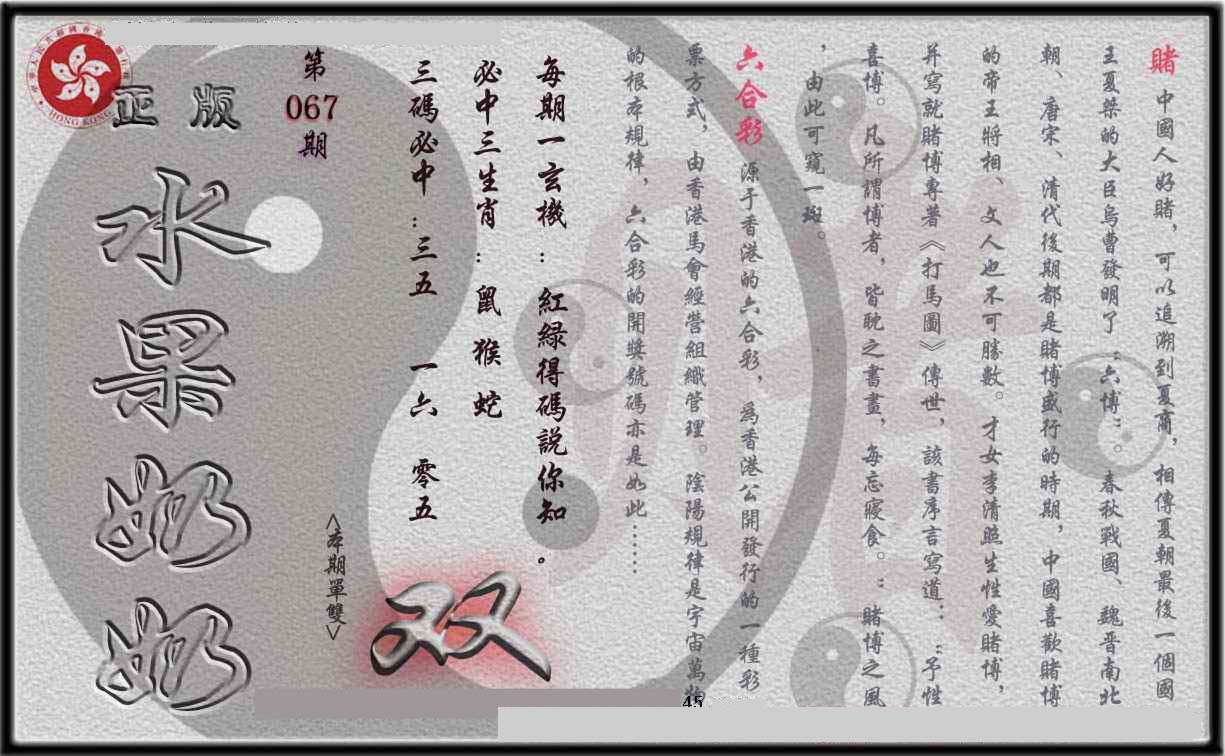 賭 中國人好賭，可以追溯到夏商，相傳夏朝最後一個國
王夏桀的大臣烏曹發明了“六博”。春秋戰國、魏晋南北
朝、唐宋、清代後期都是賭博盛行的時期，中國喜歡賭博
的帝王將相、文人也不可勝數。才女李清照生性愛賭博，
并寫就賭博專著《打馬圖》傳世，該書序言寫道：“予性
喜博。凡所謂博者，皆耽之書畫，每忘寢食。”賭博之風
，由此可窺一斑。
六合彩 源于香港的六合彩，爲香港公開發行的一種彩
票方式，由香港馬會經營組織管理。陰陽規律是宇宙萬物
的根本規律，六合彩的開獎號碼亦是如此……
每期一玄機：紅緑得碼説你知。
必中三生肖：鼠 猴 蛇
三碼必中：三五 一六 零五
<本期單雙>
双
第
067
期
正版
水果奶奶
HONG KONG
45